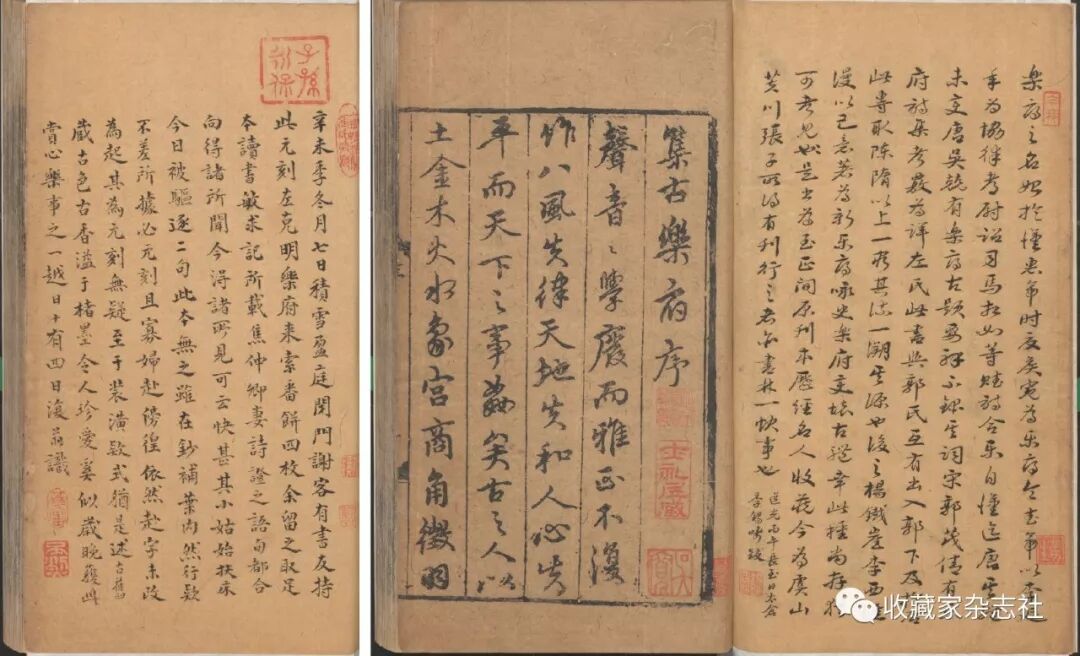 子孫永保
辛未季冬月七日積雪盈庭閉門謝客有書友持
此元刻左克明樂府来索番餅四枚余留之取足
本讀書敏求記所載焦仲卿妻詩證之語句都合
向得諸所聞今得諸所見可云快甚其小姑始扶床
今日被驅逐二句此本無之雖在鈔補葉內然行欵
不差所據必元刻且寡婦赴徬徨依然赴字未改
為起其為元刻無疑至于裝潢欵式猶是述古舊
藏古色古香溢于楮墨令人珍愛奚似歲晚獲此
賞心樂事之一越日十有四日復翁識
樂府之名始於漢惠帝時夏侯寬為樂府令至武帝以李延
年為協律考尉詔司馬相如等賦詩合樂自漢迄唐
唐吳兢有樂府古題要解不錄其詞宋郭茂倩有
府詩集考覈為詳左氏此書與郭氏互有出入郭下及
此專取陳隋以上一溯其源也後之楊鐵崖李西涯
漫以己意著為新樂府咏史樂府文壞古體幸此種尚存猶
可考見也是書為至正間原刊本歷經名人收藏今為虞山
芙川張子所得有刊行之志亦書林一快事也
道光丙午長至日太倉
季錫疇跋
集古樂府序
聲音〻學廢而雅正不復
作八風失律天地失和人心失
平而天下〻事繆矣古之人以
土金木火水象宮商角徵羽
士礼居藏
收藏家杂志社